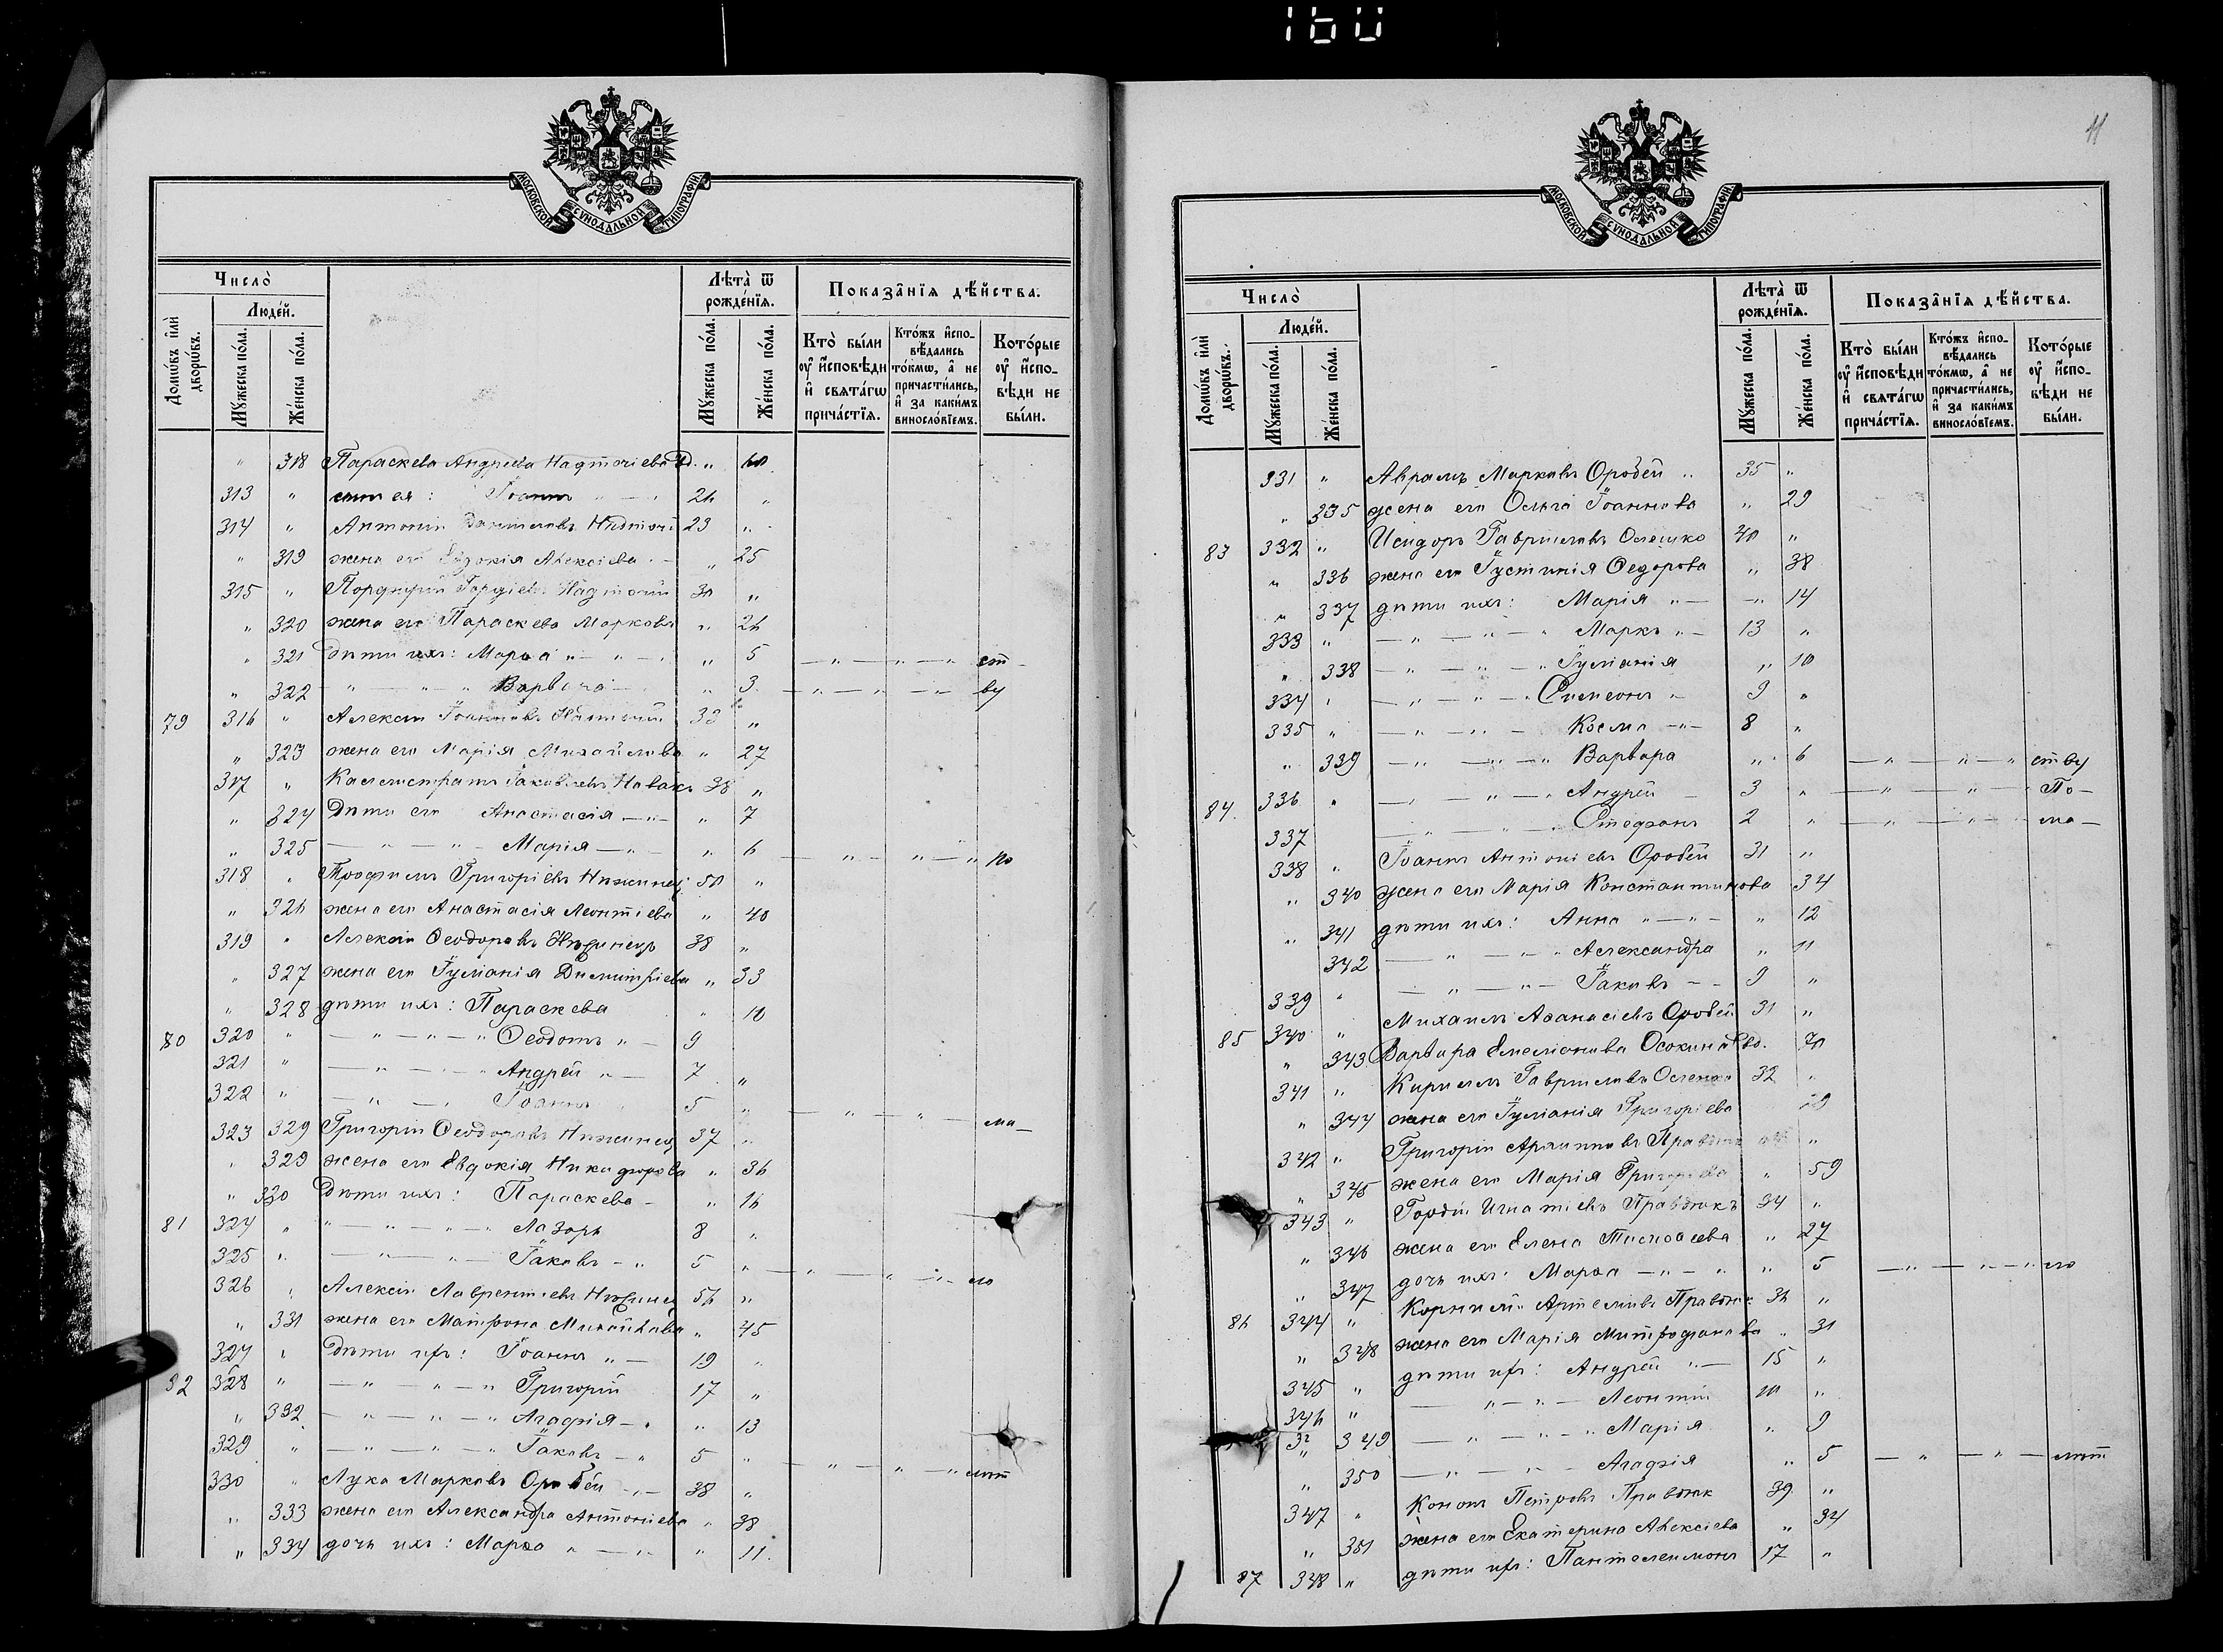 160
МОСКОВСКОЙ СѴНОДАЛЬНОЙ ТИПОГРАФІИ.
Число̀
Людéй.
Домѡ́въ и҆лѝ дворѡ́въ.
Мꙋ́жеска по́ла.
Же́нска по́ла.
Лѣта̀ ѿ рожде́нїѧ.
Мꙋ́жеска по́ла.
Же́нска по́ла.
Показа̑нїѧ дѣ́йства.
Кто̀ бы́ли ᲂу҆ и҆́сповѣди и҆ свѧта́гѡ прича́стїѧ.
Кто́жъ и҆спо-вѣ́дались то́кмѡ, а҆ не причасти́лись, и҆ за каки́мъ винословїемъ.
Кото́рые ᲂу҆ и҆́спо-вѣди не бы́ли.
" 318 Параскева Андреева Надточіева Вд. "
313 " сын ея: Іоаннъ " "
314 " Антоній Даніиловъ Надточій 23 "
" 319 жена его Евдокія Алексіева " 25
315 " Порфирій Гордіевъ Надточій 30 "
" 320 жена его Параскева Маркова " 26
" 321 Дѣти ихъ: Марѳа " " 5 — " — " — " ст-
" 322 " — " — " Варвара " 3 — " — " — ву
79 316 " Алексій Іоанновъ Надточій 33 "
" 323 жена его Марія Михайлова " 27
317 " Каллистратъ Іаковлевъ Новакъ 38 "
" 324 Дѣти его Анастасія — " — " 7
" 325 — " — " — Марія — " — " 6 — " — " — " по
318 " Трофимъ Григоріевъ Нижинец 50 "
" 326 жена его Анастасія Леонтіева " 40
319 " Алексій Ѳеодоровъ Нѣжинецъ 38 "
" 327 жена его Іуліанія Димитріева " 33
" 328 дѣти ихъ: Параскева " 10
80 320 " — " — " — " Ѳеодотъ " — 9
321 " — " — " Андрей " — 7 "
322 " — " — " Іоаннъ 5 " — " — " — ма-
323 329 Григорій Ѳеодоровъ Нижинец 37 "
" 329 жена его Евдокія Никифорова " 36
" 330 Дѣти ихъ: Параскева — " 16
81 324 " " — " — " — " Лазорь 8 "
325 " — " — " Іаковъ — " 5 " — " — " — " — ло
326 " Алексій Лаврентіевъ Нѣжинец 56 "
" 331 жена его Матрона Михайлова " 45
327 " Дѣти ихъ: Іоаннъ " — 19 "
82 328 " — " — " — " Григорій 17 "
" 332 — " — " — " Агафія — " " 13
329 " — " — " — " Іаковъ — " 5 " — " — " — " лѣт
330 " Лука Марковъ Оробей — " — 38 "
" 333 жена его Александра Антоніева " 38
" 334 дочь ихъ: Марѳа " — " " 11.
11
МОСКОВСКОЙ СѴНОДАЛЬНОЙ ТИПОГРАФІИ.
Число̀
Людéй.
Домѡ́въ и҆лѝ дворѡ́въ.
Мꙋ́жеска по́ла.
Же́нска по́ла.
Лѣта̀ ѿ рожде́нїѧ.
Мꙋ́жеска по́ла.
Же́нска по́ла.
Показа̑нїѧ дѣ́йства.
Кто̀ бы́ли ᲂу҆ и҆́сповѣди и҆ свѧта́гѡ прича́стїѧ.
Кто́жъ и҆спо-вѣ́дались то́кмѡ, а҆ не причасти́лись, и҆ за каки́мъ винословїемъ.
Кото́рые ᲂу҆ и҆́спо-вѣди не бы́ли.
331 " Аврамъ Марковъ Оробей " 35 "
" 335 жена его Ольга Іоаннова " 29
83 332 " Исидоръ Гавриловъ Олешко 40 "
" 336 жена его Іустинія Ѳедорова " 38
" 337 дѣти ихъ: Марія " — " 14
333 " — " — " — " Маркъ " — 13 "
" 338 — " — " — " Іуліанія " 10
334 " — " — " — " Симеонъ " 9 "
335 " — " — " — Косма — " — 8 "
" 339 — " — " — " Варвара " 6 — " — " — " ству
84. 336 " — " — " — " Андрей — 3 " — " — " — " По-
337 — " — " — " Стефанъ 2 " — " — " — ма-
338 " Іоаннъ Антоніевъ Оробей 31 "
" 340 жена его Марія Константинова 34
" 341 дѣти ихъ: Анна " — " — " 12
342 — " — " — " Александра " 11
339 " — " — " — Іаковъ — 9 "
85 340 " Михаилъ Аѳанасіевъ Оробей 31 "
" 343 Варвара Емеліанова Осокина Вд. 70
341 " Кириллъ Гавриловъ 32 "
" 344 жена его Іуліанія Григоріева 29
342 " Григорій Архиповъ "
" 345 жена его Марія Григоріева " 59
343 " Гордій Игнатіевъ Правдюкъ 34 "
" 346 жена его Елена " 27
" 347 дочь ихъ: Марѳа — " — " " 5 — " — " — " ло
86 344 " Корнилій Артемовъ Правдюк 36 "
" 348 жена его Марія Митрофанова " 31
345 " дѣти ихъ: Андрей " — 15 "
346 " — " — " — Леонтій 10 "
" 349 — " — " — " Марія " 9
" 350 — " — " — Агафія " 5 — " — " — лѣт
347 " Кононъ Петровъ Правдюк 39 "
" 351 жена его Екатерина Алексіева " 34
87 348 " дѣти ихъ: Пантелеимонъ 17 "